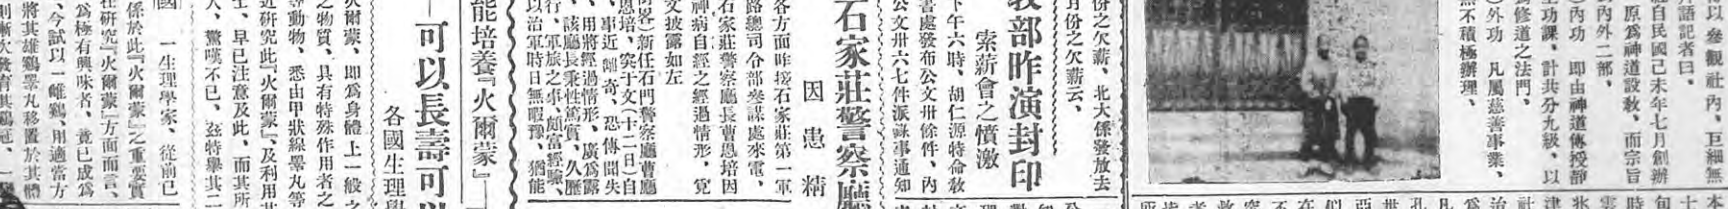 得以參觀社內、巨細無
弁語記者曰、
社自民國己未年七月創辦
原爲神道設敎、而宗旨
內外二部、
內功 即由神道傳授靜
坐功課、計共分九級、以
爲修道之法門、
外功 凡屬慈善事業、
無不積極辦理、
份之欠薪、北大係發放去
月份之欠薪云、
敎部昨演封印
索薪會之憤激
下午六時、胡仁源特命敎
書處發布公文卅餘件、內
公文卅六七件派錄事通知
石家莊警察廳
因患精
各方面昨接石家莊第一軍
路總司令部參謀處來電、
石家莊警察廳長曹恩培因
神病自經之經過情形、
文披露如左
新任石門警察廳曹廳
恩培、突于文(十二日)自
事近離奇、恐傳聞失
用將經過情形、廣爲露
該廳長秉性篤實、久歷
行、軍旅之事、頗富經驗、
以治軍時日無暇豫、猶能
能培養『火爾蒙』
可以長壽可以
各國生理學
火爾蒙、即爲身體上一般之
之物質、具有特殊作用者之
等動物、悉由甲狀線睾丸等
近研究此『火爾蒙』、及利用
士、早已注意及此、而其所
人、驚嘆不已、茲特舉其二
國
一生理學家、從前已
係於此『火爾蒙』之重要實
在研究『火爾蒙』方面而言、
爲極有興味者、竟已成爲
今試以一雌鷄、用適當方
將其雄鷄睾丸移置於其體
則漸次發育其鷄冠、